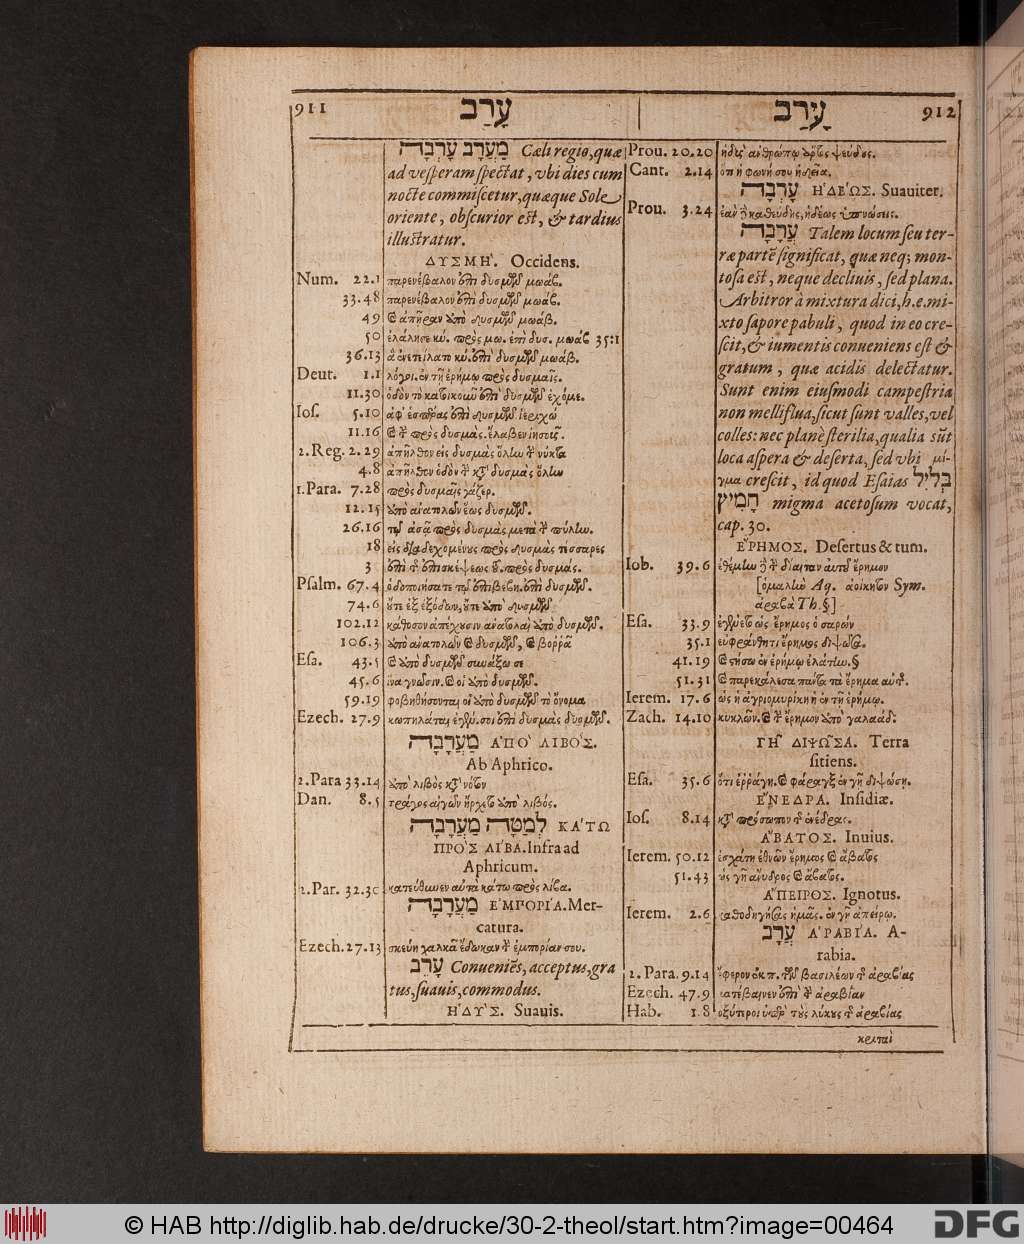 911
עָרַב
עָרַב
912
מַעֲרָב עָרְבָה Cæli regiõ, quæ
ad vesperam spectat, vbi dies cum
nocte commiscetur, quæque Sole
oriente, obscurior est, & tardius
illustratur.
ΔΥΣΜΗ'. Occidens.
Num. 22.1 παρενέβαλον ἐπὶ δυσμῶν μωάβ.
33.48 παρενέβαλον ἐπὶ δυσμῶν μωάβ.
49 ἀπῆραν ὑπὸ δυσμῶν μωάβ.
50 ἐλάλησε κύ. πρὸς μω. ἐπὶ δυσ. μωάβ 35:1
36.13 ἃ ἐνετείλατο κύ. ἐπὶ δυσμῶν μωάβ.
Deut. 1.1 λόγοι. ἐν τῇ ἐρήμῳ πρὸς δυσμαῖς.
11.30 ὁδὸν τὸ κατοικοῦν ἐπὶ δυσμῶν ἐχόμε.
Ios. 5.10 ἀφ' ἑσπέρας ἐπὶ δυσμῶν ἱεριχώ
11.16 καὶ τ πρὸς δυσμὰς. ἔλαβεν ἰησοῦς.
2. Reg. 2.29 ἀπῆλθον εἰς δυσμὰς ὅλην τ νύκτα
4.8 ἀπῆλθον ὁδὸν τ κτ δυσμὰς ὅλην
1. Para. 7.28 πρὸς δυσμαῖς γάζερ.
12.15 ὑπὸ ἀνατολῶν ἕως δυσμῶν.
26.16 τῷ ἀσᾶ πρὸς δυσμὰς μετὰ τ πύλην.
18 εἰς διαδεχομένους πρὸς δυσμὰς τέσσαρες
3
Psalm. 67.4 ὁδοποιήσατε τῷ ἐπιβεβη. ἐπὶ δυσμῶν.
74.6 οὔτε ἐξ ἐξόδων, οὔτε ὑπὸ δυσμῶν
102.12 καθόσον ἀπέχουσιν ἀνατολαὶ ὑπὸ δυσμῶν.
106.3 ὑπὸ ἀνατολῶν καὶ δυσμῶν, καὶ βοῤῥᾶ
Esa. 43.5 καὶ ὑπὸ δυσμῶν συνάξω σε
45.6 ἵνα γνῶσιν. καὶ οἱ ὑπὸ δυσμῶν.
59.19 φοβηθήσονται οἱ ὑπὸ δυσμῶν τὸ ὄνομα
Ezech. 27.9 κωπηλάται, ἐγέν. σοι ἐπὶ δυσμὰς δυσμῶν.
מַעֲרָבָה ἈΠΟ' ΛΙΒΟ'Σ.
Ab Aphrico.
2. Para 33.14 ὑπὸ λιβὸς κτ νότον
Dan. 8.5 τράγος αἰγῶν ἤρχετο ὑπὸ λιβός.
לְמַטָּה מַעֲרָבָה ΚΑ'ΤΩ
ΠΡΟ'Σ ΛΙ'ΒΑ. Infra ad
Aphricum.
2. Par. 32.30 κατεύθυνεν αὐτὰ κάτω πρὸς λίβα.
מַעֲרָבָה ΕΜΠΟΡΙ'Α. Mer-
catura.
Ezech. 27.13 σκεύη χαλκᾶ ἔδωκαν τ ἐμπορίαν σου.
עָרֵב Conueniẽs, acceptus, gra
tus, suauis, commodus.
ἩΔΥ'Σ. Suauis.
Prou. 20.20 ἡδὺς ἀνθρώπῳ ἄρτος ψεύδος.
Cant. 2.14 ὅτι ἡ φωνή σου ἡδεῖα.
עָרְבָה ἩΔΕ'ΩΣ. Suauiter.
Prou. 3.24 ἐὰν καθεύδῃς, ἡδέως ὑπνώσεις.
עֲרָבָה Talem locum seu ter-
ræ partẽ significat, quæ neq; mon-
tosa est, neque decliuis, sed plana.
Arbitror à mixtura dici, h.e. mi-
xto sapore pabuli, quod in eo cre-
scit, & iumentis conueniens est &
gratum, quæ acidis delectatur.
Sunt enim eiusmodi campestria
non melliflua, sicut sunt valles, vel
colles: nec planè sterilia, qualia sũt
loca aspera & deserta, sed vbi μί-
γμα crescit, id quod Esaias בְּלִיל
חָמִיץ migma acetosum vocat,
cap. 30.
ἜΡΗΜΟΣ. Desertus & tum.
Iob. 39.6 ἐθέμην τ δίαιταν αὐτοῦ ἔρημον
[ὁμαλὴν Aq. ἀοίκητον Sym.
ἀραβὰ Th. §]
Esa. 33.9 ἐγένετο ὡς ἔρημος ὁ σαρών
35.1 εὐφράνθητι ἔρημος διψῶσα.
41.19 καὶ στήσω ἐν ἐρήμῳ ἐλάτην. §
51.31 καὶ παρεκάλεσα πάντα τὰ ἔρημα αὐτ.
Ierem. 17.6 ὡς ἡ ἀγριομυρίκη ἡ ἐν τῇ ἐρήμῳ.
Zach. 14.10 κυκλῶν. καὶ τ ἔρημον ὑπὸ γαλαάδ.
ΓΗ͂ ΔΙΨΩ͂ΣΑ. Terra
sitiens.
Esa. 35.6 ὅτι ἐῤῥάγη. καὶ φάραγξ ἐν γῇ διψώσῃ.
ἘΝΕΔΡΑ. Insidiæ.
Ios. 8.14 κτ πρόσωπον τ ἐνέδρας.
ἌΒΑΤΟΣ. Inuius.
Ierem. 50.12 ἐσχάτη ἐθνῶν ἔρημος καὶ ἄβατος
51.43 ὡς γῆ ἄνυδρος καὶ ἄβατος.
ἌΠΕΙΡΟΣ. Ignotus.
Ierem. 2.6 καθοδηγήσας ἡμᾶς. ἐν γῇ ἀπείρῳ.
עֲרָב ἈΡΑΒΙ'Α. A-
rabia.
2. Para. 9.14 ἔφερον ἐκ π. τῶν βασιλέων τ ἀραβίας
Ezech. 47.9 κατέβαινεν ἐπὶ τ ἀραβίαν
Hab. 1.8 ὀξύτεροι ὑπὲρ τοὺς λύκους τ ἀραβίας
κριταὶ
© HAB http://diglib.hab.de/drucke/30-2-theol/start.htm?image=00464
DFG